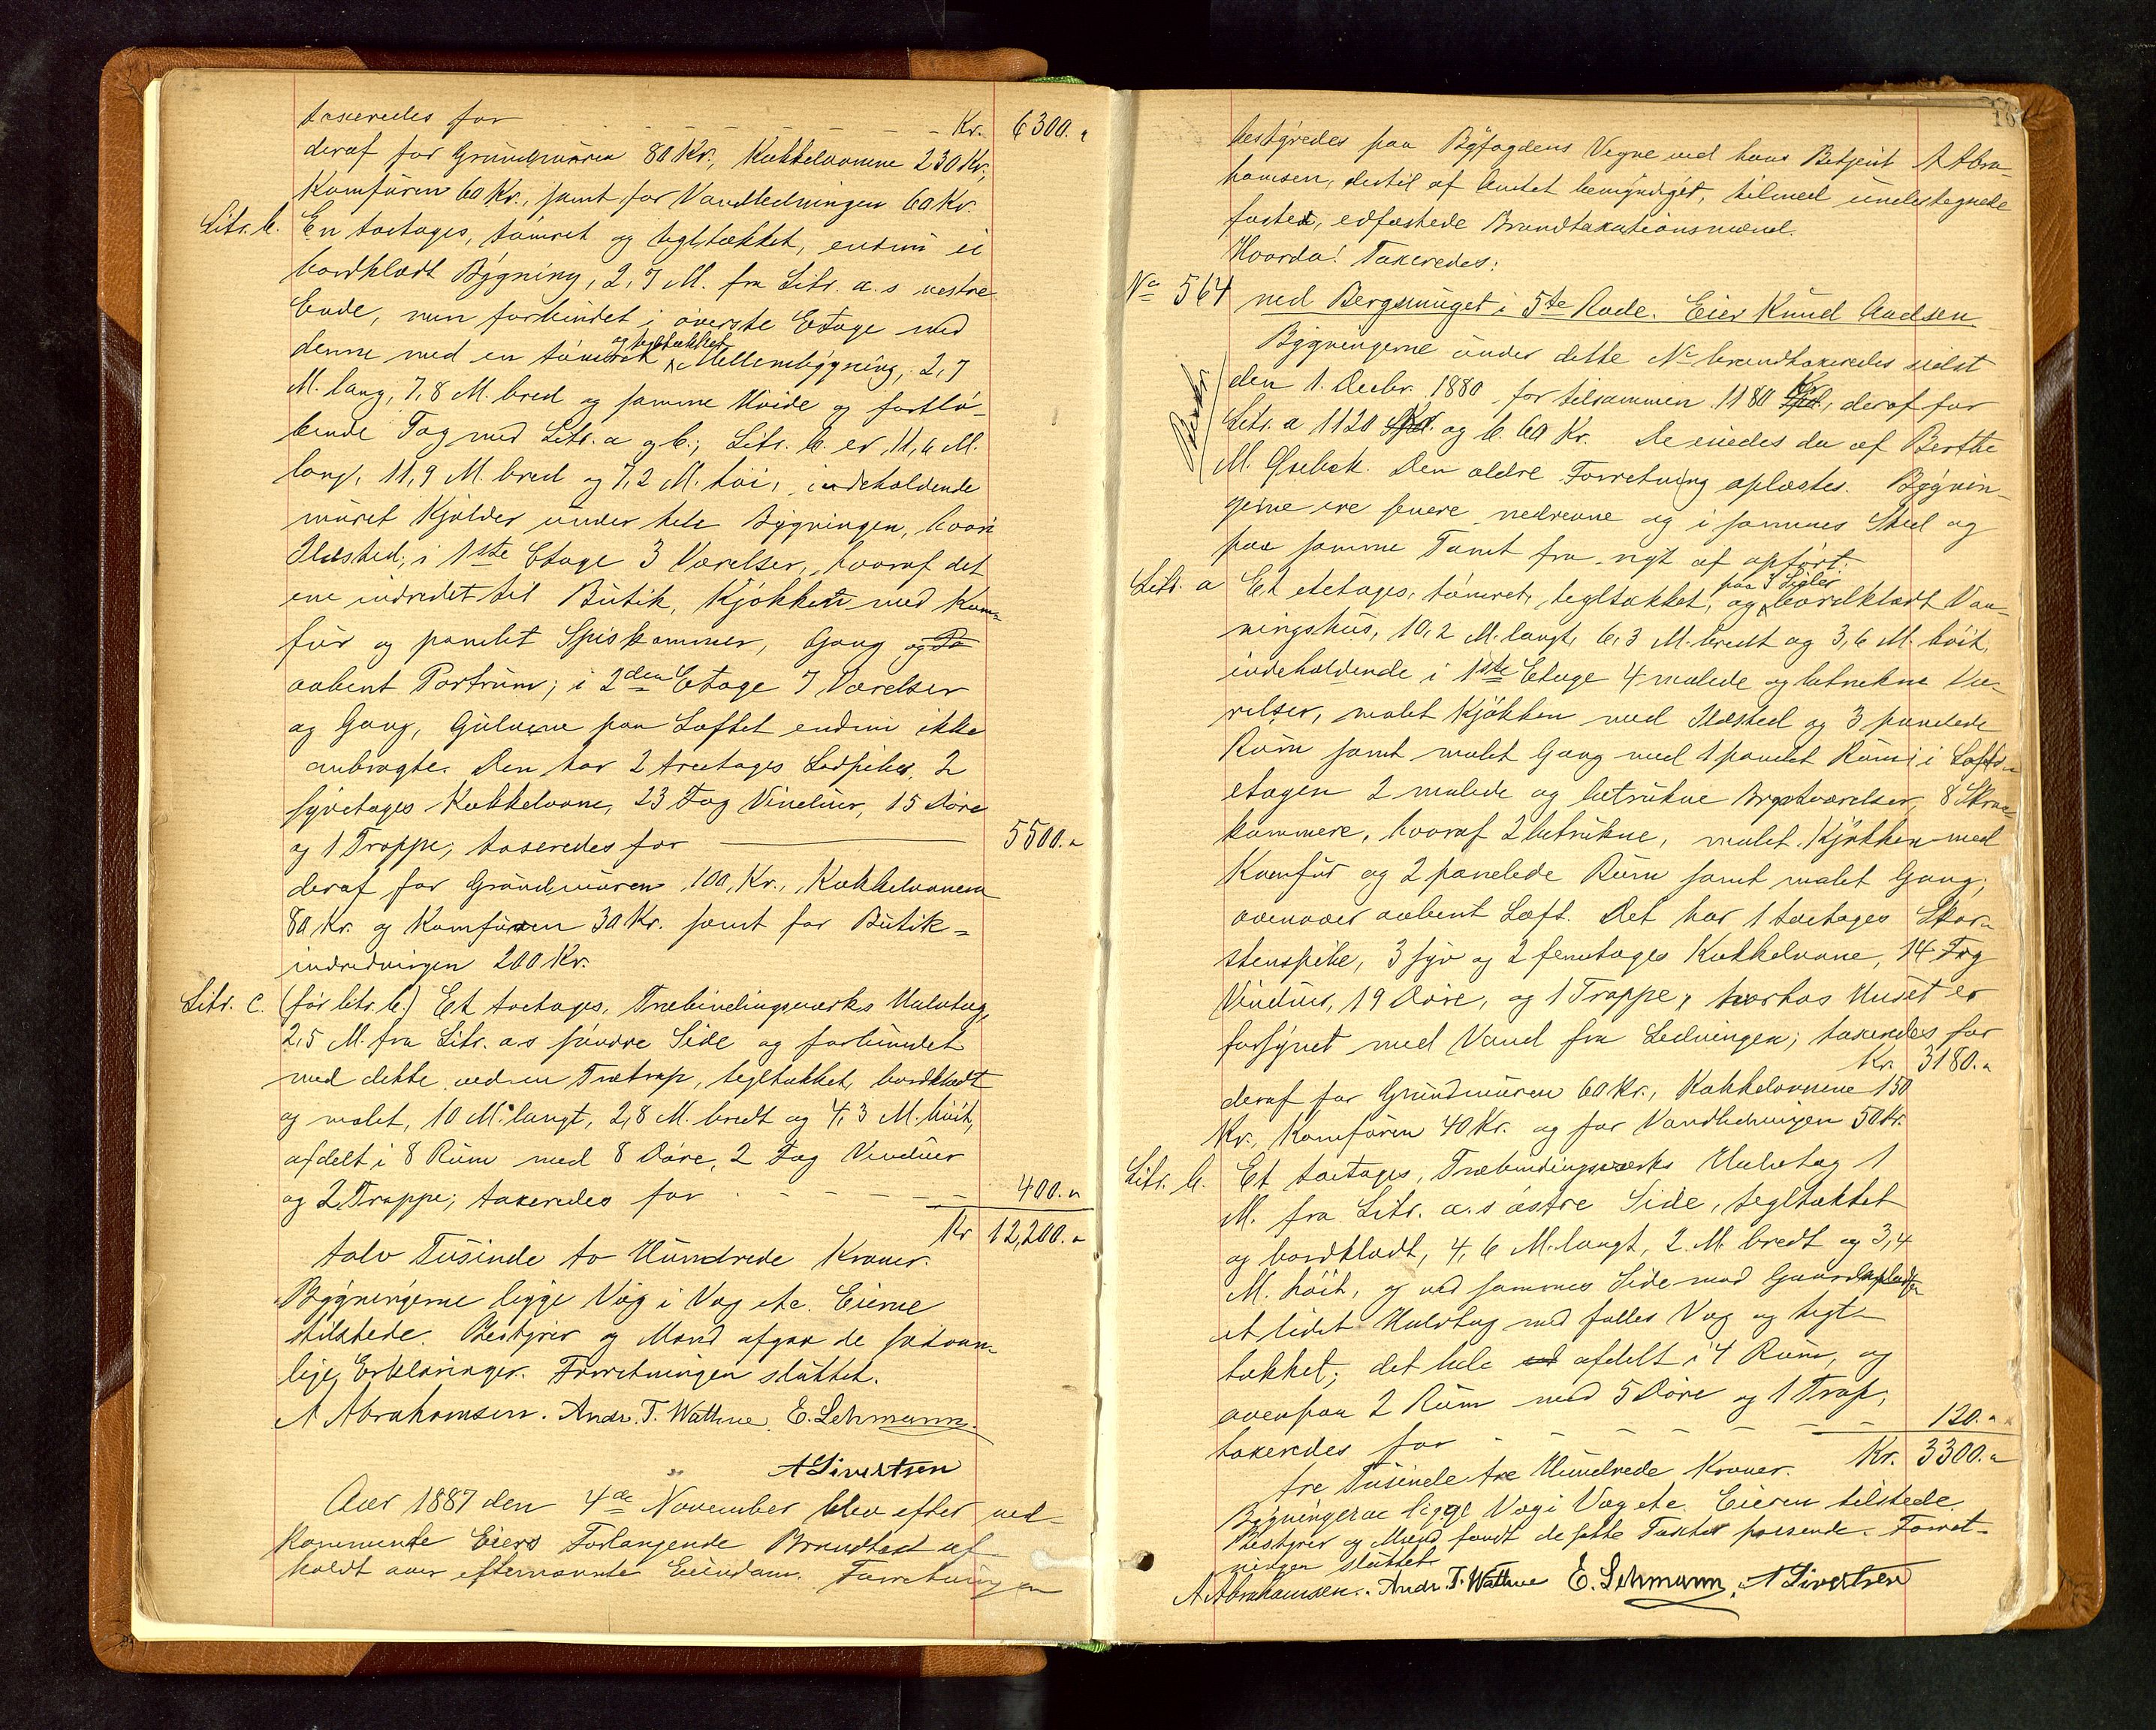 taxeredes for - - - - - - - - Kr. 6300."
deraf for Grundmuren 80 Kr., Kakkelovnene 230 Kr.,
Komfuren 60 Kr., samt for Vandledningen 60 Kr.
Litr. b. En toetages, tømret og tegltækket, endnu ei
bordklædt Bygning, 2,7 M. fra Litr. a.s vestre
Ende, men forbundet i øverste Etage med
denne med en tømret og tegltækket Mellembygning, 2,7
M. lang, 7,8 M. bred og samme Høide og fortlø-
bende Tag med Litr. a og b.; Litr. b. er 11,6 M.
lang, 11,9 M. bred og 7,2 M. høi, indeholdende
muret Kjælder under hele Bygningen, hvori
Ildsted; i 1ste Etage 3 Værelser, hvoraf det
ene indredet til Butik, Kjøkken med Kom-
für og panelet Spiskammer, Gang og To
aabent Portrum; i 2den Etage 7 Værelser
og Gang, Gulvene paa Loftet endnu ikke
anbragte. Den har 2 treetages Ladpiber, 2
syvetages Kakkelovne, 23 Fag Vinduer, 15 Døre
og 1 Trappe; taxeredes for 5500."
deraf for Grundmuren 100 Kr., Kakkelovnene
80 Kr. og Komfuren 30 Kr. samt for Butik-
indredningen 200 Kr.
Litr. c. (før litr. b.) Et toetages, Træbindingsværks Uulvtag,
2,5 M. fra Litr. a.s søndre Side og forbundet
med dette ved en Trætrap, tegltækket, bordklædt
og malet, 10 M. langt, 2,8 M. bredt og 4,3 M. høit,
afdelt i 8 Rum med 8 Døre, 2 Fag Vinduer
og 2 Trappe; taxeredes for - - - - - 400."
Kr 12,200."
tolv Tusinde to Hundrede Kroner.
Bygningerne ligge Væg i Væg etc. Eierne
tilstede. Bestyrer og Mænd afgav de sædvan-
lige Erklæringer. Forretningen sluttet.
A Abrahamsen. Andr. T. Wathne. E. Lehmann.
A Sivertsen
Aar 1887 den 4de November blev efter ved-
kommende Eiers Forlangende Brandtaxt af
holdt over efternævnte Eiendom. Forretningen
16
bestyredes paa Byfogdens Vegne ved hans Betjent A Abra-
hamsen, dertil af Amtet bemyndiget, tilmed undertegnede
faste, edfæstede Brandtaxationsmænd.
Hvorda! Taxeredes:
No 564 ved Bergsmuget i 5te Rode. Eier Knud Aadsen
Bygningerne under dette No brandtaxeredes sidst
den 1. Decbr. 1880 for tilsammen 1180 Kr, deraf for
Litr. a 1120 Kr. og b. 60 Kr. De eiedes da af Berthe
M. Den ældre Forretning oplæstes. Bygnin-
gerne ere senere nedrevne og i sammes Sted og
paa samme Tomt fra nyt af opført:
Litr. a Et etetages, tømret, tegltækket, og paa 3 Sider bordklædt Vaa-
ningshus, 10,2 M. langt, 6,3 M. bredt og 3,6 M. høit,
indeholdende i 1ste Etage 4 malede og betrukne Væ-
relser, malet Kjøkken med Ildsted og 3 panelede
Rum samt malet Gang med 1 panelet Rum; i Lofts-
etagen 2 malede og betrukne Brystværelser, 8 Skraa-
kammere, hvoraf 2 betrukne, malet Kjøkken med
Komfur og 2 panelede Rum samt malet Gang;
ovenover aabent Loft. Det har 1 toetages Skor-
stenspibe, 3 syv og 2 femetages Kakkelovne, 14 Fag
Vinduer, 19 Døre, og 1 Trappe, hvorhos Huset er
forsynet med Vand fra Ledningen; taxeredes for
Kr. 3180."
deraf for Grundmuren 60 Kr., Kakkelovnene 150
Kr., Komfuren 40 Kr. og for Vandledningen 50 Kr.
Litr. b. Et toetages, Træbindingsværks Uulvtag 1
M. fra Litr. a.s østre Side, tegltækket
og bordklædt, 4,6 M. langt, 2. M. bredt og 3,4
M. høit, og ved sammes Side mod Gaardspladsen
et lidet Uulvtag med fælles Væg og tegl-
tækket; det hele afdelt i 4 Rum, og
ovenpaa 2 Rum med 5 Døre og 1 Trap;
taxeredes for - - - - - - - 120."
tre Tusinde tre Hundrede Kroner. Kr. 3300."
Bygningerne ligge Væg i Væg etc. Eieren tilstede.
Bestyrer og Mænd fandt de satte Taxter passende. Forret-
ningen sluttet.
A Abrahamsen. Andr. T. Wathne E. Lehmann. A Sivertsen